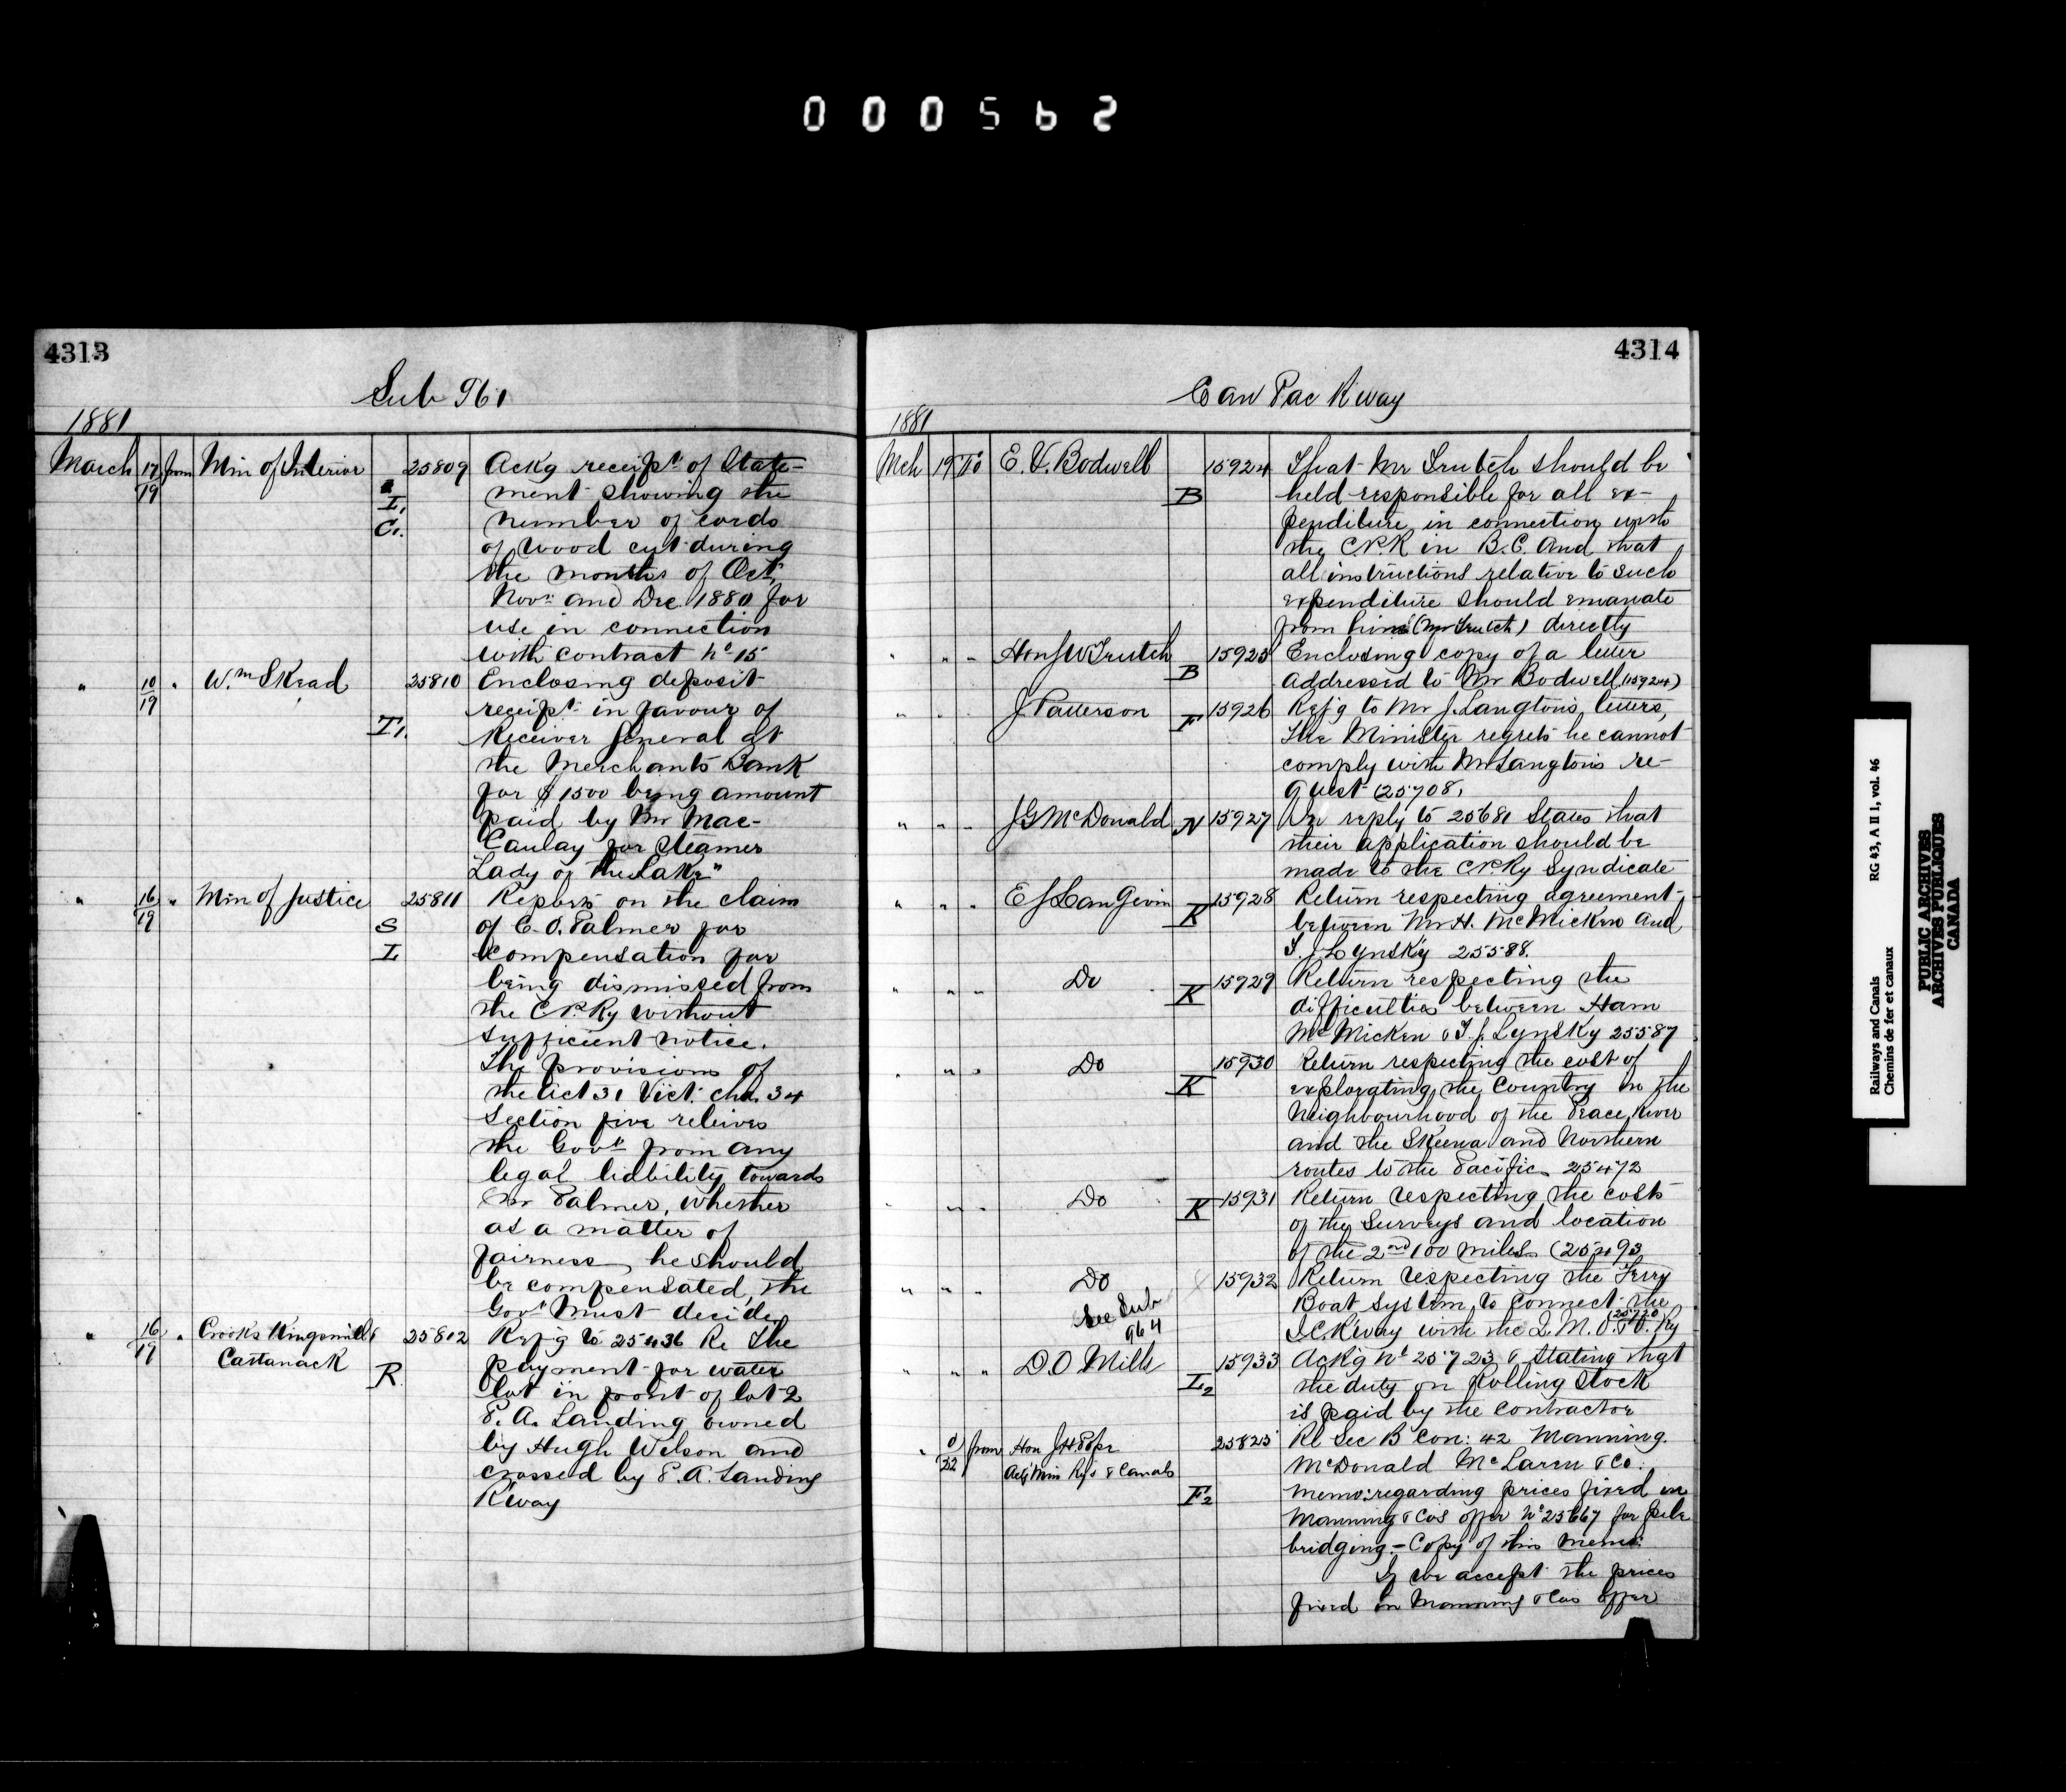 000562
4313
Sub 961
1881
March 17/19 from Min of Interior 25809 Ackg receipt of State-
I, ment showing the
C,. number of cords
of wood cut during
the months of Oct,
Novr and Dec 1880 for
use in connection
with contract No 15
" 10/19 " Wm Skead 25810 Enclosing deposit
receipt in favour of
T,. Receiver General at
the Merchants Bank
for $1500 being amount
paid by Mr Mac-
Caulay for Steamer
"Lady of the Lake"
" 16/19 " Min of Justice 25811 Reports on the claim
S of C. O. Palmer for
I compensation for
being dismissed from
the C.P.Ry without
sufficient notice.
The provisions of
the Act 31 Vict: cha. 34
Section five releives
the Govt from any
legal liability towards
Mr Palmer, whether
as a matter of
fairness, he should
be compensated, the
Govt Must decide
" 16/19 " Crooks Kingsmill & 25812 Refg to 25436 Re the
Cattanack payment for water
R. lot in front of lot 2
P. A. Landing owned
by Hugh Wilson and
crossed by P. A. Landing
R'way
4314
Can Pac R way
1881
Mch 19 To E. V. Bodwell 15924 That Mr Trutch should be
B held responsible for all ex-
penditure in connection with
the C.P.R in B.C. And that
all instructions relative to such
expenditure should emanate
from him (Mr Trutch) directly
" " " Hon J W Trutch 15925 Enclosing copy of a letter
B addressed to Mr Bodwell (15924)
" " J Patterson F 15926 Refg to Mr J. Langton's letters,
the Minister regrets he cannot
comply with Mr Langton's re-
quest (25708,
" " " J G McDonald N 15927 In reply to 25681 States that
their application should be
made to the C.P.Ry Syndicate
" " " E J Langevin 15928 Return respecting agreement
K between Mr H. McMicken and
T. J. Lynsky 25588.
" " " Do 15929 Return respecting the
K difficulties between Ham
McMicken & T. J. Lynsky 25587
" " " Do 15930 Return respecting the cost of
K explorating the Country in the
Neighbourhood of the Peace River
and the Skeena and Northern
routes to the Pacific 25472
" " " Do 15931 Return respecting the costs
K of the Surveys and location
of the 2nd 100 miles (25493
" " " Do 15932 Return respecting the Ferry
See Sub Boat System to connect the
964 I.C.R'way with the Q. M. O. & O. Ry 25720
" " " D.O Mills 15933 Ackg No 25723 & stating that
L2 the duty on Rolling Stock
is paid by the contractor
" 0/22 from Hon J H Pope 25825 Re Sec B Con: 42 Manning.
Actg Min Rys & Canals McDonald McLaren & Co.
F2 memo: regarding prices fixed in
Manning & Cos offer No 25667 for pile
bridging - Copy of this memo:
If we accept the prices
fixed in Manning & Cos offer
Railways and Canals RG 43, A II 1, vol. 46
Chemins de fer et canaux
PUBLIC ARCHIVES
ARCHIVES PUBLIQUES
CANADA